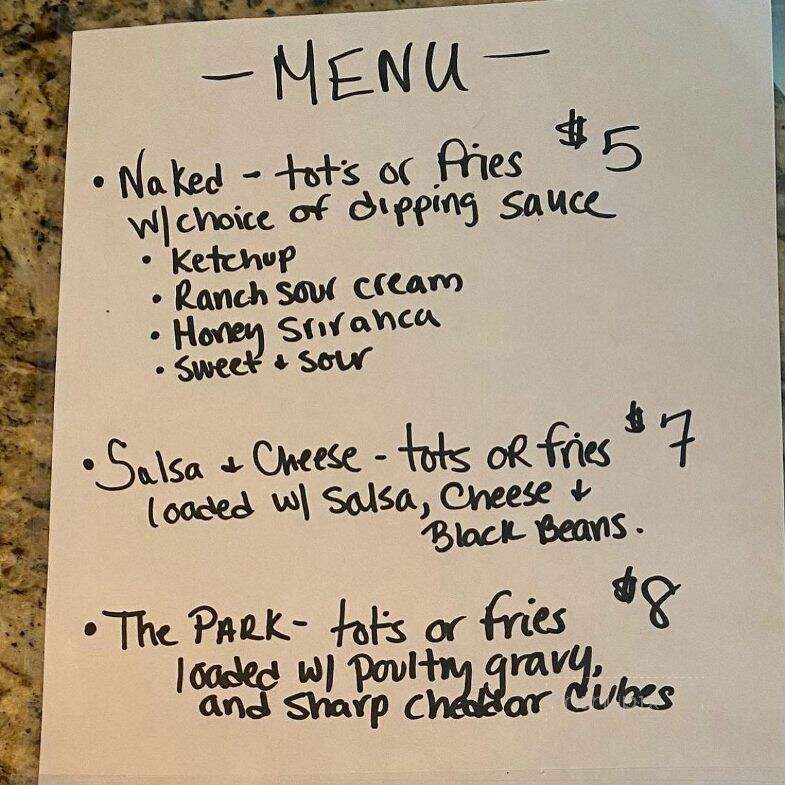 - MENU -
• Naked - tot's or fries $5
w/choice of dipping sauce
• Ketchup
• Ranch sour cream
• Honey Sriranca
• Sweet + Sour
• Salsa + Cheese - tots OR fries $7
loaded w/ Salsa, Cheese +
Black Beans.
• The PARK - tot's or fries $8
loaded w/ Poultry gravy,
and Sharp cheddar cubes